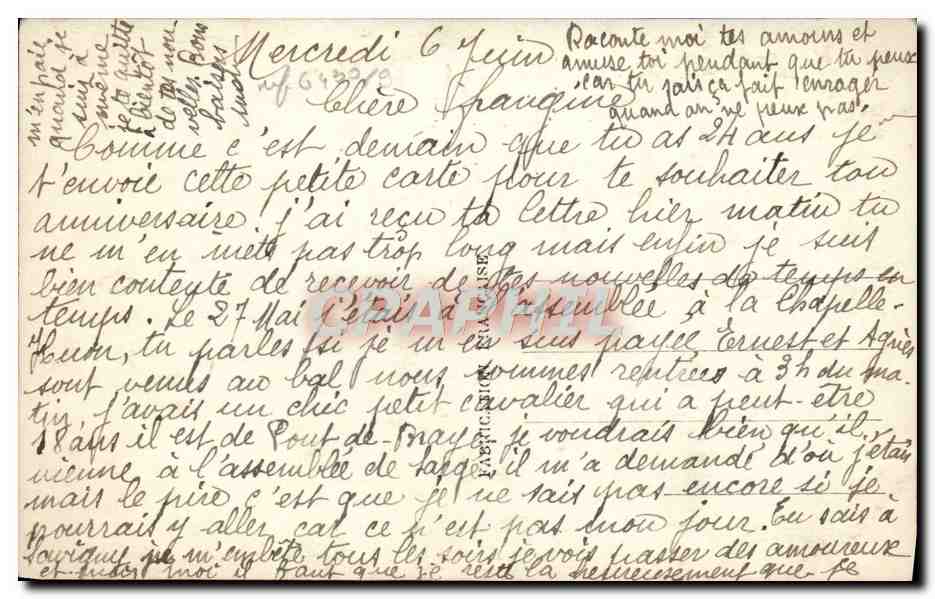 Mercredi 6 Juin
Chère frangine
Comme c'est demain que tu as 24 ans je
t'envoie cette petite carte pour te souhaiter ton
anniversaire j'ai reçu ta lettre hier matin tu
ne m'en mets pas trop long mais enfin je suis
bien contente de recevoir de tes nouvelles de temps en
temps. Le 27 Mai j'étais à l'assemblée à la Chapelle-
Huon, tu parles si je m'en suis payée Ernest et Agnès
sont venus au bal nous sommes rentrées à 3h du ma-
tin j'avais un chic petit cavalier qui a peut-être
18 ans il est de Pont-de-Braye je voudrais bien qu'il
vienne à l'assemblée de Sargé il m'a demandé d'où j'étais
mais le pire c'est que je ne sais pas encore si je
pourrais y aller car ce n'est pas mon jour. Tu sais à
Savigny je m'embête tous les soirs je vois passer des amoureux
et puis moi il faut que je reste là heureusement que je
m'en paie
quand je
suis à
même
je te quitte
à bientôt
de tes nou-
velles Bons
baisers
Raconte moi tes amours et
amuse toi pendant que tu peux
car tu sais ça fait enrager
quand on ne peux pas.
FABRICATION FRANÇAISE
CPAPHIL